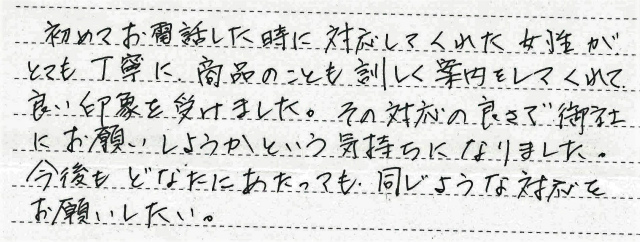 初めてお電話した時に対応してくれた女性が
とても丁寧に、商品のことも詳しく案内をしてくれて
良い印象を受けました。その対応の良さで御社
にお願いしようかという気持ちになりました。
今後もどなたにあたっても、同じような対応を
お願いしたい。